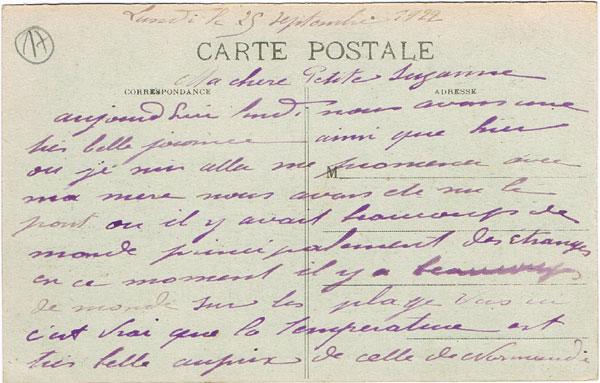 17
Lundi le 25 septembre 1922
CARTE POSTALE
Ma chere Petite Suzanne
CORRESPONDANCE
ADRESSE
aujourd'hui lundi nous avons une
tres belle journee ainsi que hier
ou je suis alle me promener avec
M
ma mere nous avons ete sur le
pont ou il y avait beaucoups de
monde principalement des etranges
en ce moment il y a beaucoups
de monde sur les plage
c'est vrai que la temperature est
tres belle auprix de celle de Normandie